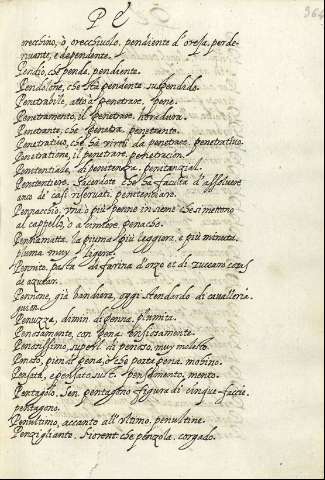 P E
364
orecchino, ò orecchiuolo. pendiente d'oreja. perde-
riuante, e dependente.
Pendio, che pende, pendiente.
Pendolone, che stà pendente suspendido.
Penetrabile, atto à penetrare,
Penetramento, il penetrare, horadura.
Penetrante, che penetra, penetrante.
Penetratiuo, che hà virtù da penetrare, penetratiuo.
Penetratione, il penetrare, penetracion.
Penitentiale, di penitenza, penitencial.
Penitentiere, Sacerdote che ha facultà d'assoluere
anco de' casi riseruati, penitenciario.
Pennacchio, una ò più penne insieme che si mettono
al cappello, ò a cimiere, penacho.
Pennamatta, la piuma più leggiera, e più minuta,
piuma muy ligera.
Pennito, pasta di farina d'orzo et di zuccaro
de açucar.
Pennone, già bandiera, oggi stendardo di caualleria.
Pennuzza, dimin. di penna, plumita.
Penosamente, con pena
Penosissimo, superl. di penoso, muy molesto.
Penoso, pien di pena, ò che porta pena, mohino.
Pensata, e pensato sust. pensamento,
Pentagolo, pentagono figura di cinque faccie.
pentagono.
Penultimo, accanto all'ultimo, penultimo.
Penzigliante, Fiorent. che penzola, colgado.